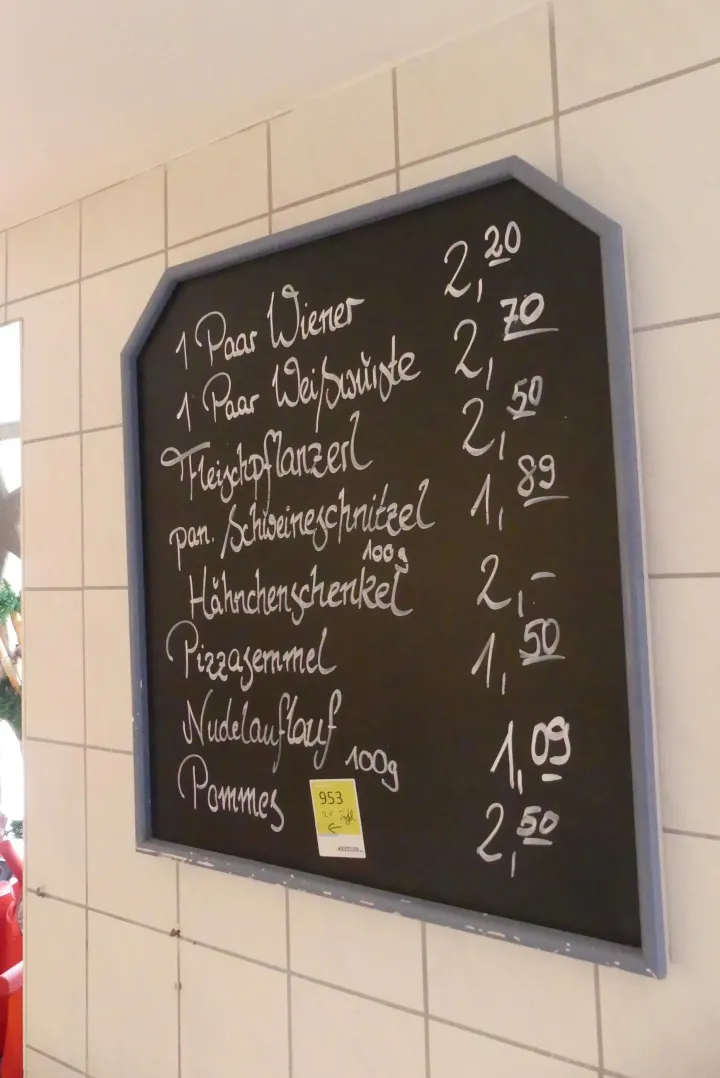 1 Paar Wiener 2,20
1 Paar Weißwürste 2,70
Fleischpflanzerl 2,50
pan. Schweineschnitzel 100g 1,89
Hähnchenschenkel 2,-
Pizzasemmel 1,50
Nudelauflauf 100g 1,09
Pommes 2,50
953